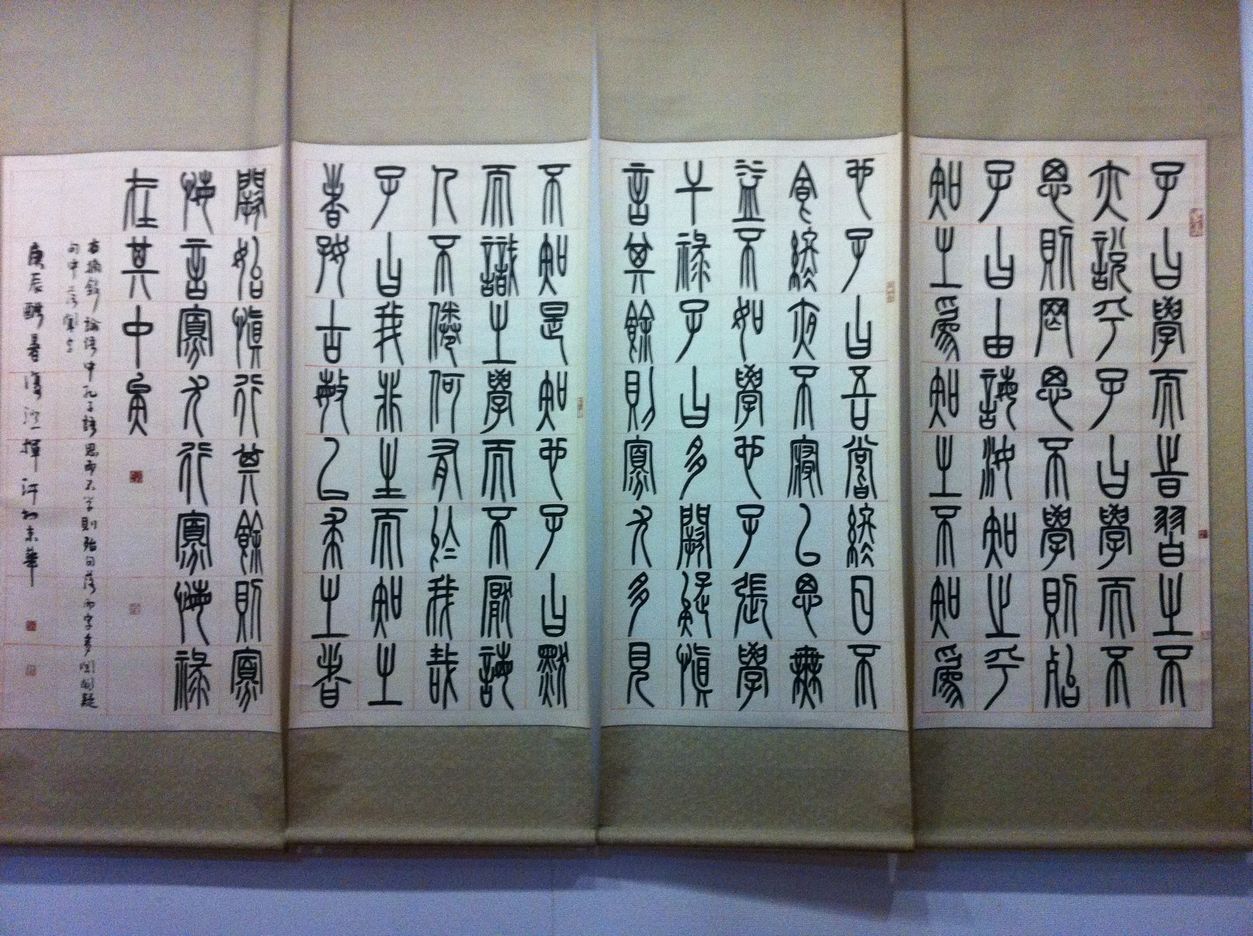 子曰學而時習之不
亦說乎子曰學而不
思則罔思不學則殆
子曰由誨汝知之乎
知之為知之不知為
也子曰吾嘗終日不
食終夜不寢以思無
益不如學也子張學
干祿子曰多闕疑慎
言其餘則寡尤多見
不知是知也子曰默
而識之學而不厭誨
人不倦何有於我哉
子曰我非生而知之
者好古敏以求之者
闕殆慎行其餘則寡
悔言寡尤行寡悔祿
在其中矣
右摘錄論語中孔子語思而不學則殆句落而字多聞闕疑
句中落聞字
庚辰酷暑揮汗於京華